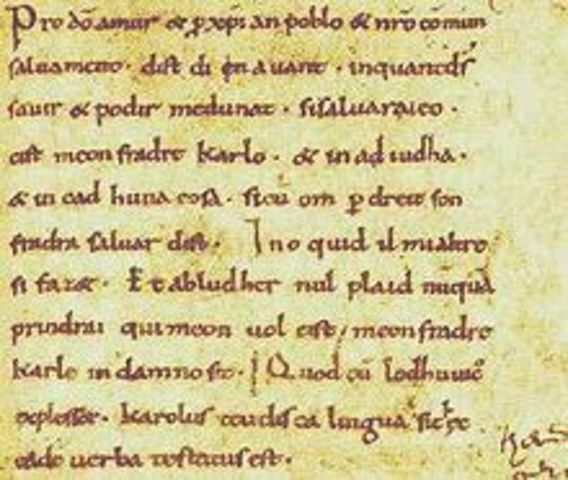 Pro dō amur & p xp̄ian poblo & nrō cōmun
saluament. dist di en auant. inquantdſ
sauir & podir medunat. sisaluaraieo.
cist meon fradre Karlo. & in ad iudha.
& in cad huna cosa. sicū om p dreit son
fradra saluar dist. Ino quid il mialtre
si faz&. Et abludher nul plaid nūquā
prindrai qui meon uol cist, meonfradre
Karle in damno sit. Quod cū lodhuuic̄
explesset. Karolus teudisca lingua sic
eade uerba testatus est.